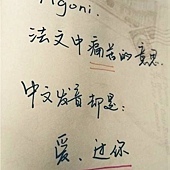 Agoni.
法文中痛苦的意思.
中文发音却是:
爱、过你